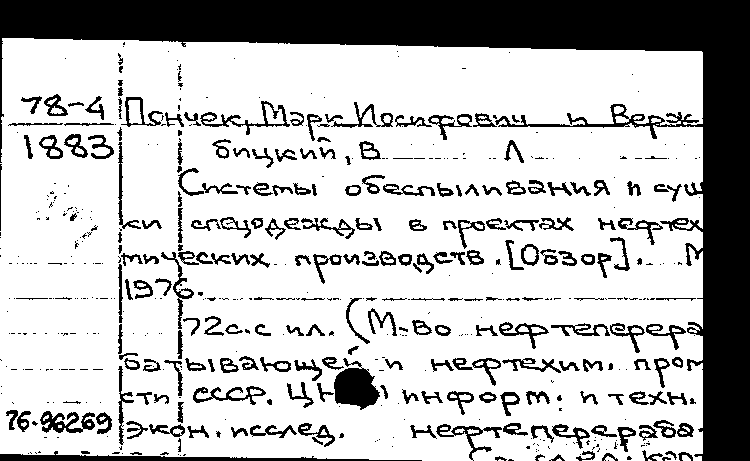 78-4 Пончек, Марк Иосифович и Верж
1883 бицкий, В Л
Системы обеспыливания и суш
ки спецодежды в проектах нефтех
мических производств. [Обзор]. М
1976.
72с.с ил. (М-во нефтеперера
батывающей и нефтехим. пром
сти СССР. информ. и техн.
76-96269 экон. исслед. нефтеперераба-